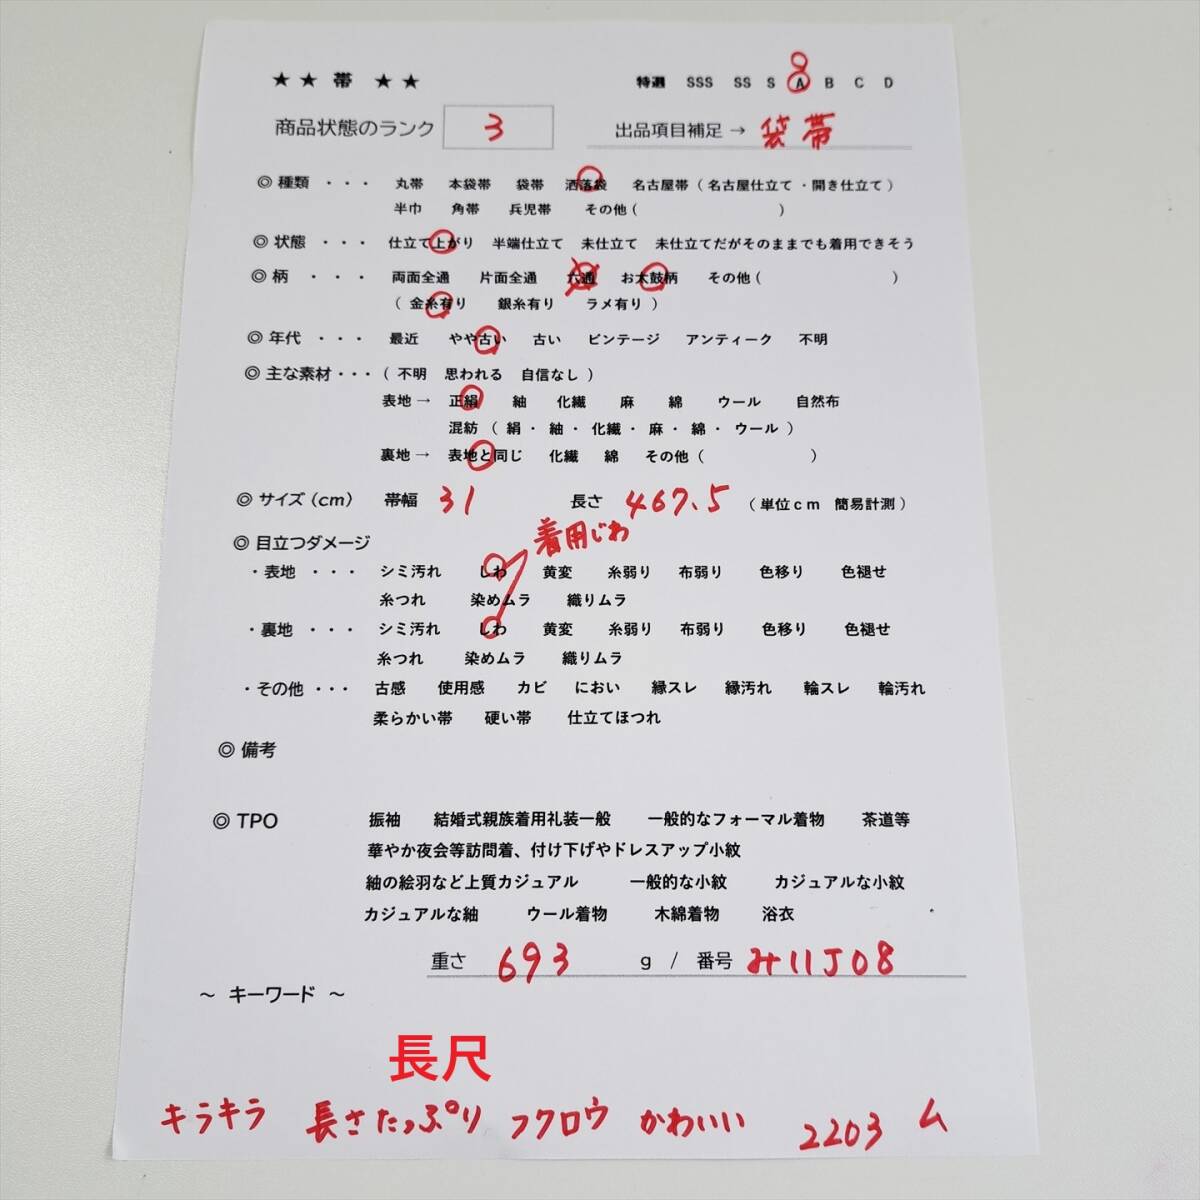 ★ ★ 帯 ★ ★
特選 SSS SS S A B C D
商品状態のランク 3 出品項目補足 → 袋帯
◎ 種類 ・・・ 丸帯 本袋帯 袋帯 洒落袋 名古屋帯 ( 名古屋仕立て ・開き仕立て )
半巾 角帯 兵児帯 その他 ( )
◎ 状態 ・・・ 仕立て上がり 半端仕立て 未仕立て 未仕立てだがそのままでも着用できそう
◎ 柄 ・・・ 両面全通 片面全通 六通 お太鼓柄 その他 ( )
( 金糸有り 銀糸有り ラメ有り )
◎ 年代 ・・・ 最近 やや古い 古い ビンテージ アンティーク 不明
◎ 主な素材・・・ ( 不明 思われる 自信なし )
表地 → 正絹 紬 化繊 麻 綿 ウール 自然布
混紡 ( 絹・紬・化繊・麻・綿・ウール )
裏地 → 表地と同じ 化繊 綿 その他 ( )
◎ サイズ (cm) 帯幅 31 長さ 467.5 ( 単位cm 簡易計測 )
着用じわ
◎ 目立つダメージ
・表地 ・・・ シミ汚れ しわ 黄変 糸弱り 布弱り 色移り 色褪せ
糸つれ 染めムラ 織りムラ
・裏地 ・・・ シミ汚れ しわ 黄変 糸弱り 布弱り 色移り 色褪せ
糸つれ 染めムラ 織りムラ
・その他 ・・・ 古感 使用感 カビ におい 縁スレ 縁汚れ 輪スレ 輪汚れ
柔らかい帯 硬い帯 仕立てほつれ
◎ 備考
◎ TPO 振袖 結婚式親族着用礼装一般 一般的なフォーマル着物 茶道等
華やか夜会等訪問着、付け下げやドレスアップ小紋
紬の絵羽など上質カジュアル 一般的な小紋 カジュアルな小紋
カジュアルな紬 ウール着物 木綿着物 浴衣
重さ 693 g / 番号 み11J08
～ キーワード ～
長尺
キラキラ 長さたっぷり フクロウ かわいい 2203 ム